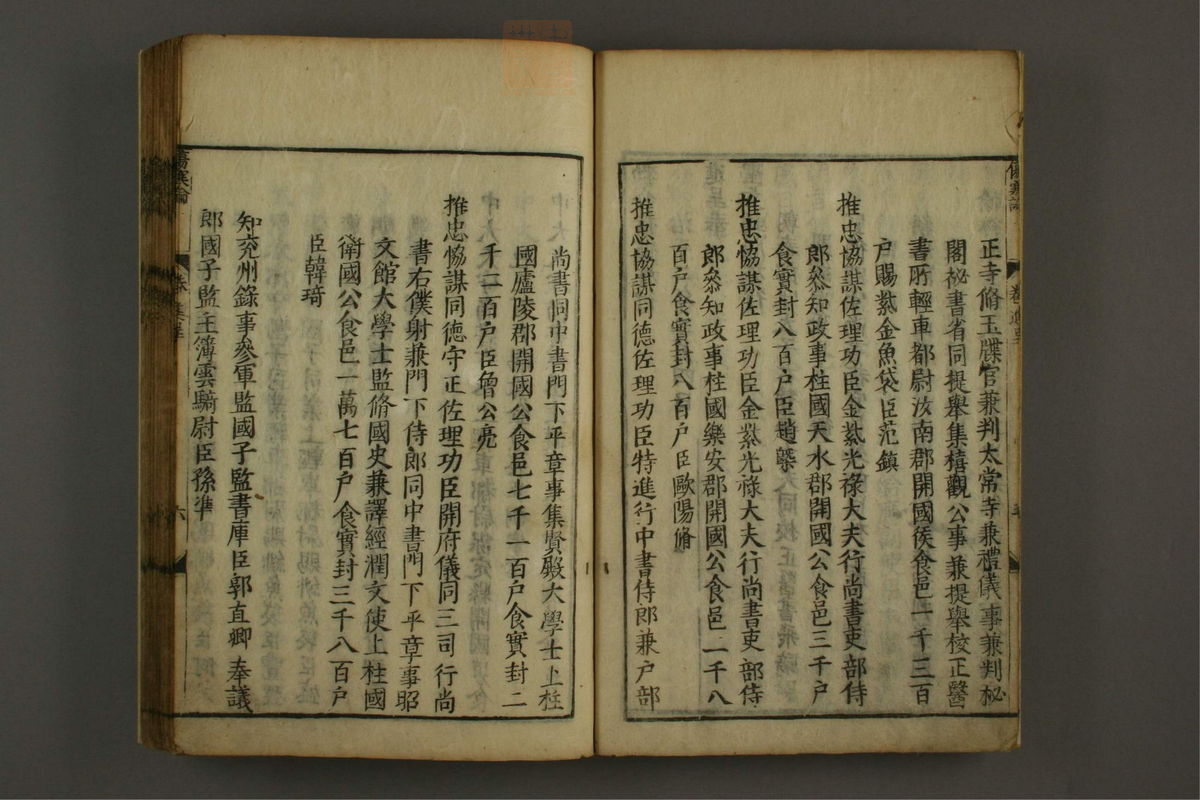 正寺脩玉牒官兼判太常寺兼禮儀事兼判祕
閣秘書省同提舉集禧觀公事兼提舉校正醫
書所輕車都尉汝南郡開國侯食邑一千三百
户賜紫金魚袋臣范鎮
推忠恊謀佐理功臣金紫光祿大夫行尚書吏部侍
郎參知政事柱國天水郡開國公食邑三千户
食實封八百户臣趙槩
推忠恊謀佐理功臣金紫光祿大夫行尚書吏部侍
郎參知政事柱國樂安郡開國公食邑二千八
百户食實封八百户臣歐陽脩
推忠協謀同德佐理功臣特進行中書侍郎兼户部
尚書同中書門下平章事集賢殿大學士上柱
國廬陵郡開國公食邑七千一百户食實封二
千二百户臣曾公亮
推忠恊謀同德守正佐理功臣開府儀同三司行尚
書右僕射兼門下侍郎同中書門下平章事昭
文館大學士監脩國史兼譯經潤文使上柱國
衛國公食邑一萬七百户食實封三千八百户
臣韓琦
知兖州錄事參軍監國子監書庫臣郭直卿 奉議
郎國子監主簿雲騎尉臣孫準
傷寒論
六